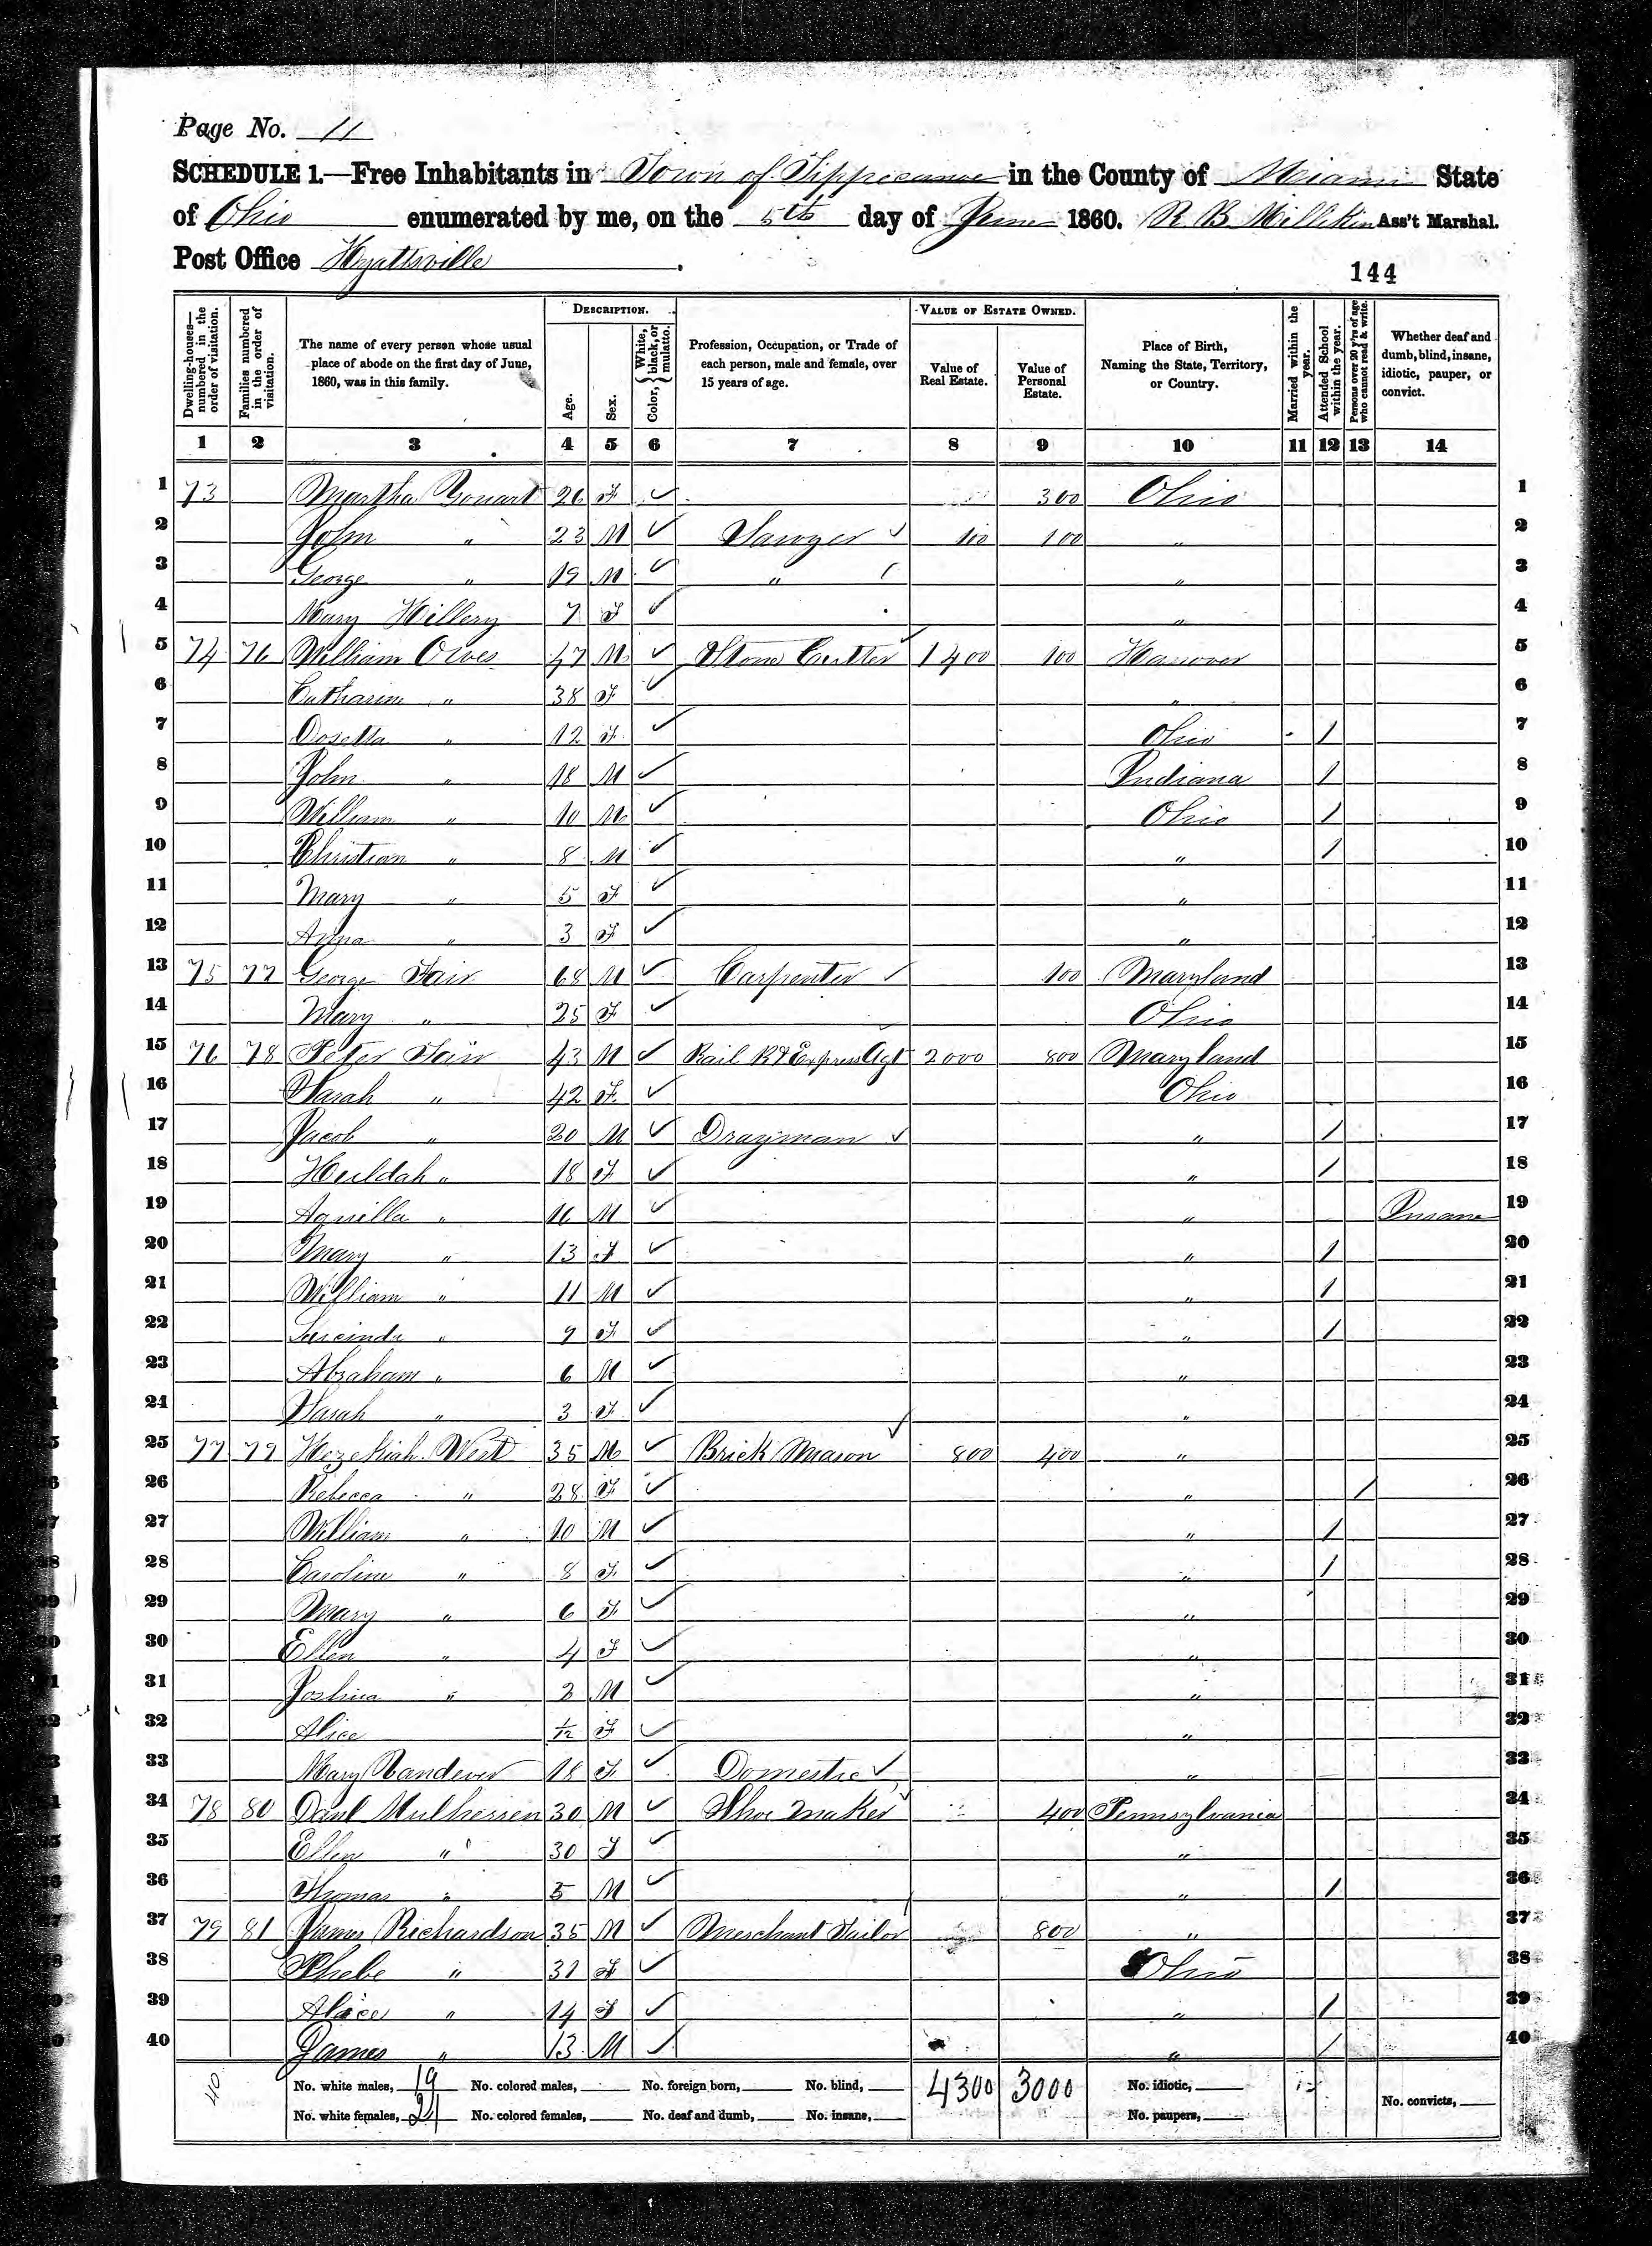 Page No. 11
SCHEDULE 1.—Free Inhabitants in Town of Tippecanoe in the County of Miami State
of Ohio enumerated by me, on the 5th day of June 1860. R. B. Milliken Ass't Marshal.
Post Office Hyattsville
144
Dwelling-houses—numbered in the order of visitation. Families numbered in the order of visitation. The name of every person whose usual place of abode on the first day of June, 1860, was in this family. DESCRIPTION. Age. Sex. Color, { White, black, or mulatto. Profession, Occupation, or Trade of each person, male and female, over 15 years of age. VALUE OF ESTATE OWNED. Value of Real Estate. Value of Personal Estate. Place of Birth, Naming the State, Territory, or Country. Married within the year. Attended School within the year. Persons over 20 y'rs of age who cannot read & write. Whether deaf and dumb, blind, insane, idiotic, pauper, or convict.
1 2 3 4 5 6 7 8 9 10 11 12 13 14
1 73 Martha 26 F ✓ 300 Ohio 1
2 John " 23 M ✓ Sawyer ✓ 100 100 " 2
3 George " 19 M ✓ " " 3
4 Mary Hillery 7 F ✓ " 4
5 74 76 William 47 M ✓ Stone Cutter ✓ 1400 100 Hanover 5
6 Catharine " 38 F ✓ " 6
7 Dosetta " 12 F ✓ Ohio / 7
8 John " 18 M ✓ Indiana / 8
9 William " 10 M ✓ Ohio / 9
10 Christian " 8 M ✓ " / 10
11 Mary " 5 F ✓ " 11
12 Anna " 3 F ✓ " 12
13 75 77 George Fair 68 M ✓ Carpenter ✓ 100 Maryland 13
14 Mary " 25 F ✓ Ohio 14
15 76 78 Peter Fair 43 M ✓ Rail Rd Express Agt 2000 800 Maryland 15
16 Sarah " 42 F ✓ Ohio 16
17 Jacob " 20 M ✓ Drayman ✓ " / 17
18 Huldah " 18 F ✓ " / 18
19 Aquilla " 16 M ✓ " Insane 19
20 Mary " 13 F ✓ " / 20
21 William " 11 M ✓ " / 21
22 Lucinda " 9 F ✓ " / 22
23 Abraham " 6 M ✓ " 23
24 Sarah " 3 F ✓ " 24
25 77 79 Hezekiah West 35 M ✓ Brick Mason ✓ 800 400 " 25
26 Rebecca " 28 F ✓ " / 26
27 William " 10 M ✓ " / 27
28 Caroline " 8 F ✓ " / 28
29 Mary " 6 F ✓ " 29
30 Ellen " 4 F ✓ " 30
31 Joshua " 2 M ✓ " 31
32 Alice 1/12 F ✓ " 32
33 Mary Vandever 18 F ✓ Domestic ✓ " 33
34 78 80 Danl 30 M ✓ Shoe Maker ✓ 400 Pennsylvania 34
35 Ellen " 30 F ✓ " 35
36 Thomas " 5 M ✓ " / 36
37 79 81 James Richardson 35 M ✓ Merchant Tailor 800 " 37
38 Phebe " 31 F ✓ Ohio 38
39 Alice " 14 F ✓ " / 39
40 James " 13 M ✓ " / 40
40 No. white males, 19 No. colored males, No. foreign born, No. blind, 4300 3000 No. idiotic,
No. white females, 21 No. colored females, No. deaf and dumb, No. insane, No. paupers, No. convicts,